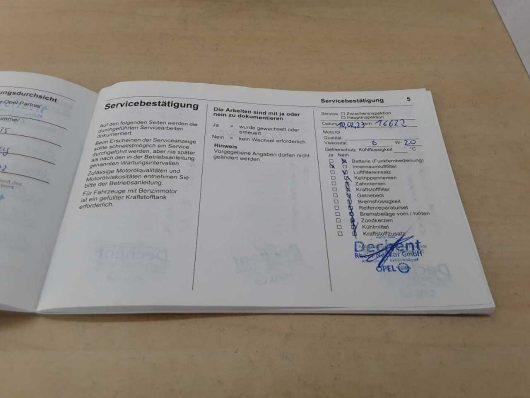 ungsdurchsicht
Opel Partner
Servicebestätigung
Auf den folgenden Seiten werden die
durchgeführten Servicearbeiten
dokumentiert.
Beim Erscheinen der Serviceanzeige
sollte schnellstmöglich ein Service
durchgeführt werden, aber nie später
als nach den in der Betriebsanleitung
genannten Wartungsintervallen.
Zulässige Motorölqualitäten und
Motorölviskositäten entnehmen Sie
bitte der Betriebsanleitung.
Für Fahrzeuge mit Benzinmotor
ist ein gefüllter Kraftstofftank
erforderlich.
Die Arbeiten sind mit ja oder
nein zu dokumentieren:
Ja = wurde gewechselt oder
erneuert
Nein = kein Wechsel erforderlich
Hinweis
Vorgegebene Angaben dürfen nicht
geändert werden.
Servicebestätigung 5
Service: Zwischeninspektion
Hauptinspektion
Datum km
Motoröl
Qualität
Viskosität 0 W- 20
Gefrierschutz Kühlflüssigkeit °C
Ja Nein
Batterie (Funkfernbedienung)
Innenraumluftfilter
Luftfiltereinsatz
Keilrippenriemen
Zahnriemen
Kraftstofffilter
Getriebeöl
Bremsflüssigkeit
Reifenreparaturset
Bremsbeläge vorn / hinten
Zündkerzen
Kühlmittel
Kraftstoffzusatz
Dechent
GmbH
OPEL